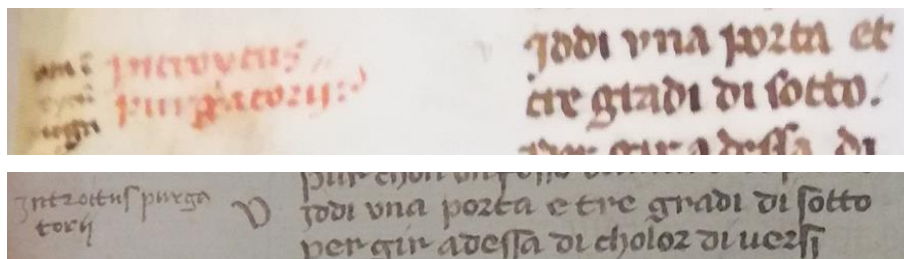 introytus
purgatorij:
jodi vna porta et
tre gradi di sotto.
per gir adessa di
introitus purga
torij
jodi vna porta e tre gradi di sotto
per gir adessa di cholor di uersi